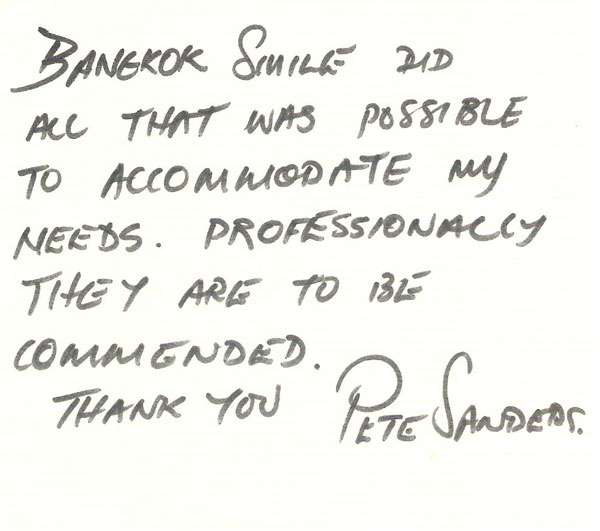 BANGKOK SMILE DID
ALL THAT WAS POSSIBLE
TO ACCOMMODATE MY
NEEDS. PROFESSIONALLY
THEY ARE TO BE
COMMENDED.
THANK YOU PETE SANDERS.